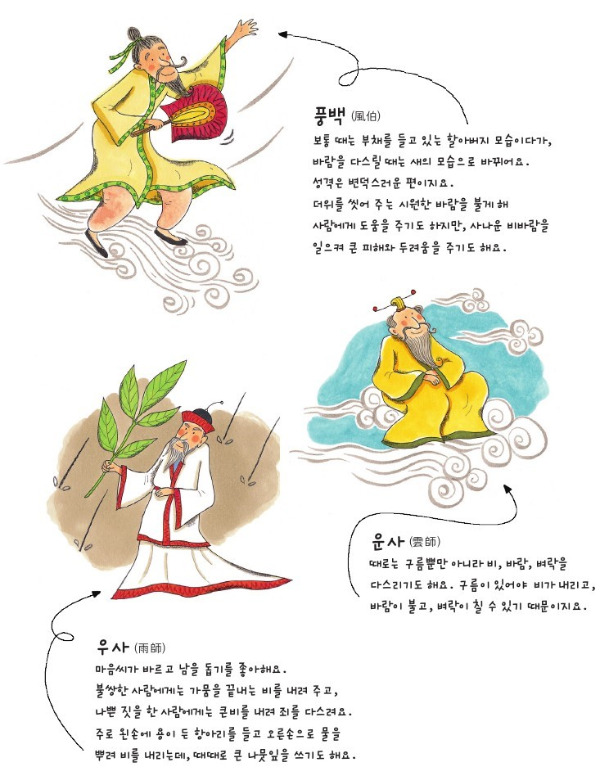 풍백 (風伯)
보통 때는 부채를 들고 있는 할아버지 모습이다가,
바람을 다스릴 때는 새의 모습으로 바뀌어요.
성격은 변덕스러운 편이지요.
더위를 씻어 주는 시원한 바람을 불게 해
사람에게 도움을 주기도 하지만, 사나운 비바람을
일으켜 큰 피해와 두려움을 주기도 해요.
운사 (雲師)
때로는 구름뿐만 아니라 비, 바람, 벼락을
다스리기도 해요. 구름이 있어야 비가 내리고,
바람이 불고, 벼락이 칠 수 있기 때문이지요.
우사 (雨師)
마음씨가 바르고 남을 돕기를 좋아해요.
불쌍한 사람에게는 가뭄을 끝내는 비를 내려 주고,
나쁜 짓을 한 사람에게는 큰비를 내려 죄를 다스려요.
주로 왼손에 용이 든 항아리를 들고 오른손으로 물을
뿌려 비를 내리는데, 때때로 큰 나뭇잎을 쓰기도 해요.